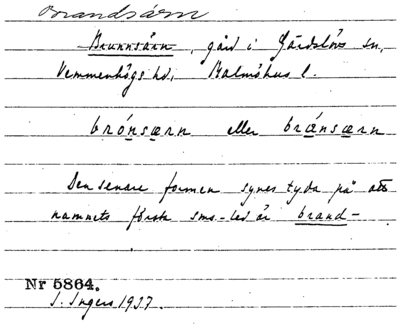 Brandsärn
Brunnsärn, gård i Gärdslövs sn,
Vemmenhögs hd, Malmöhus l.
brónsærn eller brǽnsærn
Den senare formen synes tyda på att
namnets första sms.-led är brand-
Nr 5864.
I. Ingers 1937.